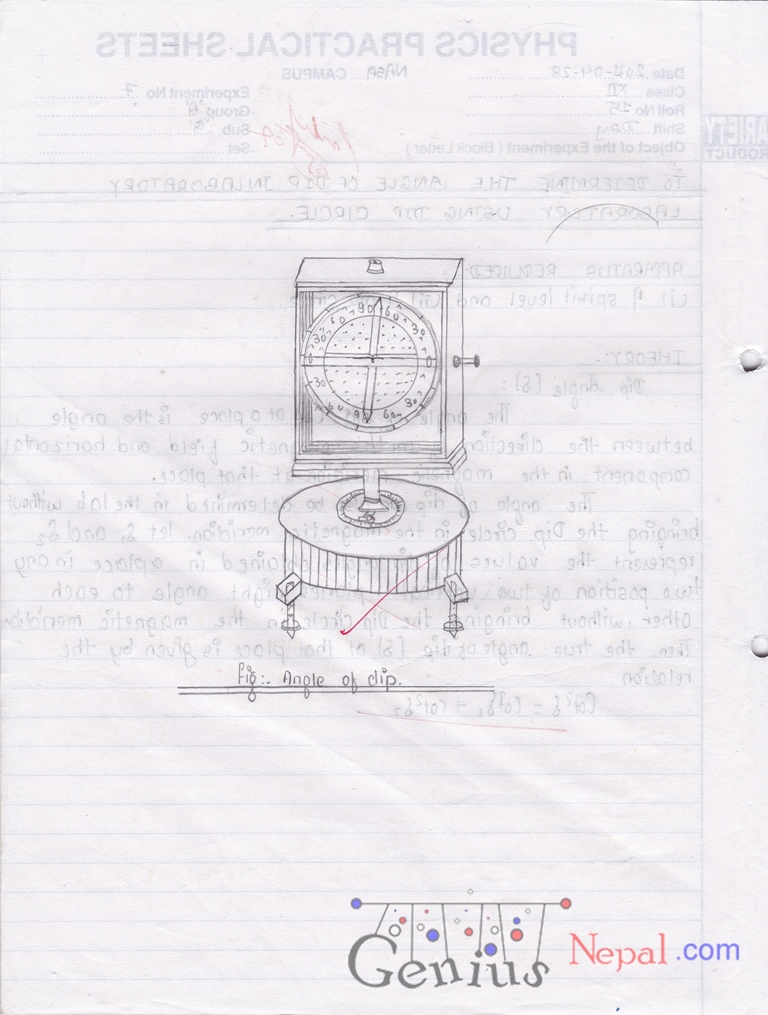 PHYSICS PRACTICAL SHEETS
Date 2071-04-28 CAMPUS NASA
Class XII Experiment No. 7
Roll No 75 Group
Shift Day Sub.
Object of the Experiment ( Block Letter ) Set
TO DETERMINE THE ANGLE OF DIP IN LABORATORY
LABORATORY USING DIP CIRCLE.
APPARATUS REQUIRED
spirit level and
THEORY:-
Dip Angle (δ) :
The angle of a place is the angle
between the direction magnetic field and horizontal
component in the magnetic meridian at that place.
The angle of dip be determined in the lab without
bringing the Dip circle in the magnetic meridian. let δ1 and δ2
represent the values of obtained in a place in any
two position of two right angle to each
other without bringing the Dip circle in the magnetic meridian
Then the true angle of dip (δ) at that place is given by the
relation
Cot²δ = Cot²δ1 + Cot²δ2
0 30 60 90 60 30 0
30 60 90 60 30
Fig:. Angle of dip.
Genius Nepal .com